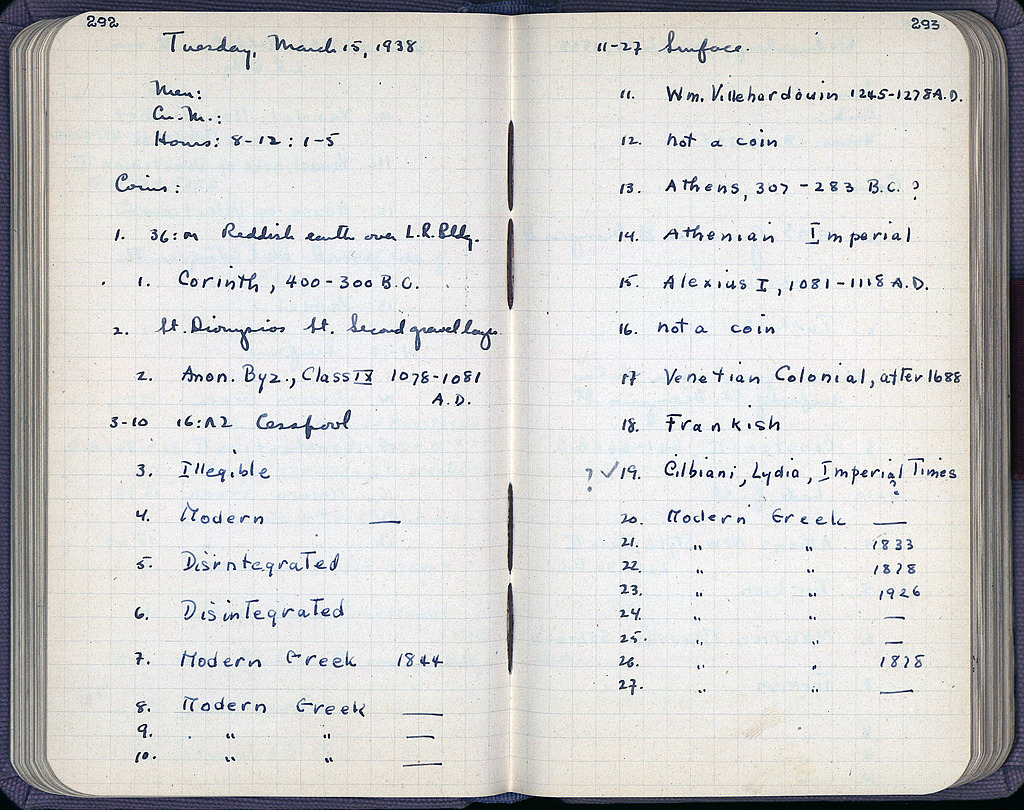 292
Tuesday, March 15, 1938
Men:
Cu. M.:
Hours: 8-12 : 1-5
Coins:
1. 36: Reddish earth over L.R. Bldg.
1. Corinth, 400-300 B.C.
2. St. Dionysios St. Second gravel layer
2. Anon. Byz., Class IX 1078-1081
A.D.
3-10 16:Λ2 Cesspool
3. Illegible
4. Modern —
5. Disintegrated
6. Disintegrated
7. Modern Greek 1844
8. Modern Greek —
9. " " —
10. " " —
293
11-27 Surface.
11. Wm. Villehardouin 1245-1278 A.D.
12. not a coin
13. Athens, 307-283 B.C. ?
14. Athenian Imperial
15. Alexius I, 1081-1118 A.D.
16. not a coin
17 Venetian Colonial, after 1688
18. Frankish
? ✓19. Cilbiani, Lydia, Imperial Times
?
20. Modern Greek —
21. " " 1833
22. " " 1878
23. " " 1926
24. " " —
25. " " —
26. " " 1878
27. " " —